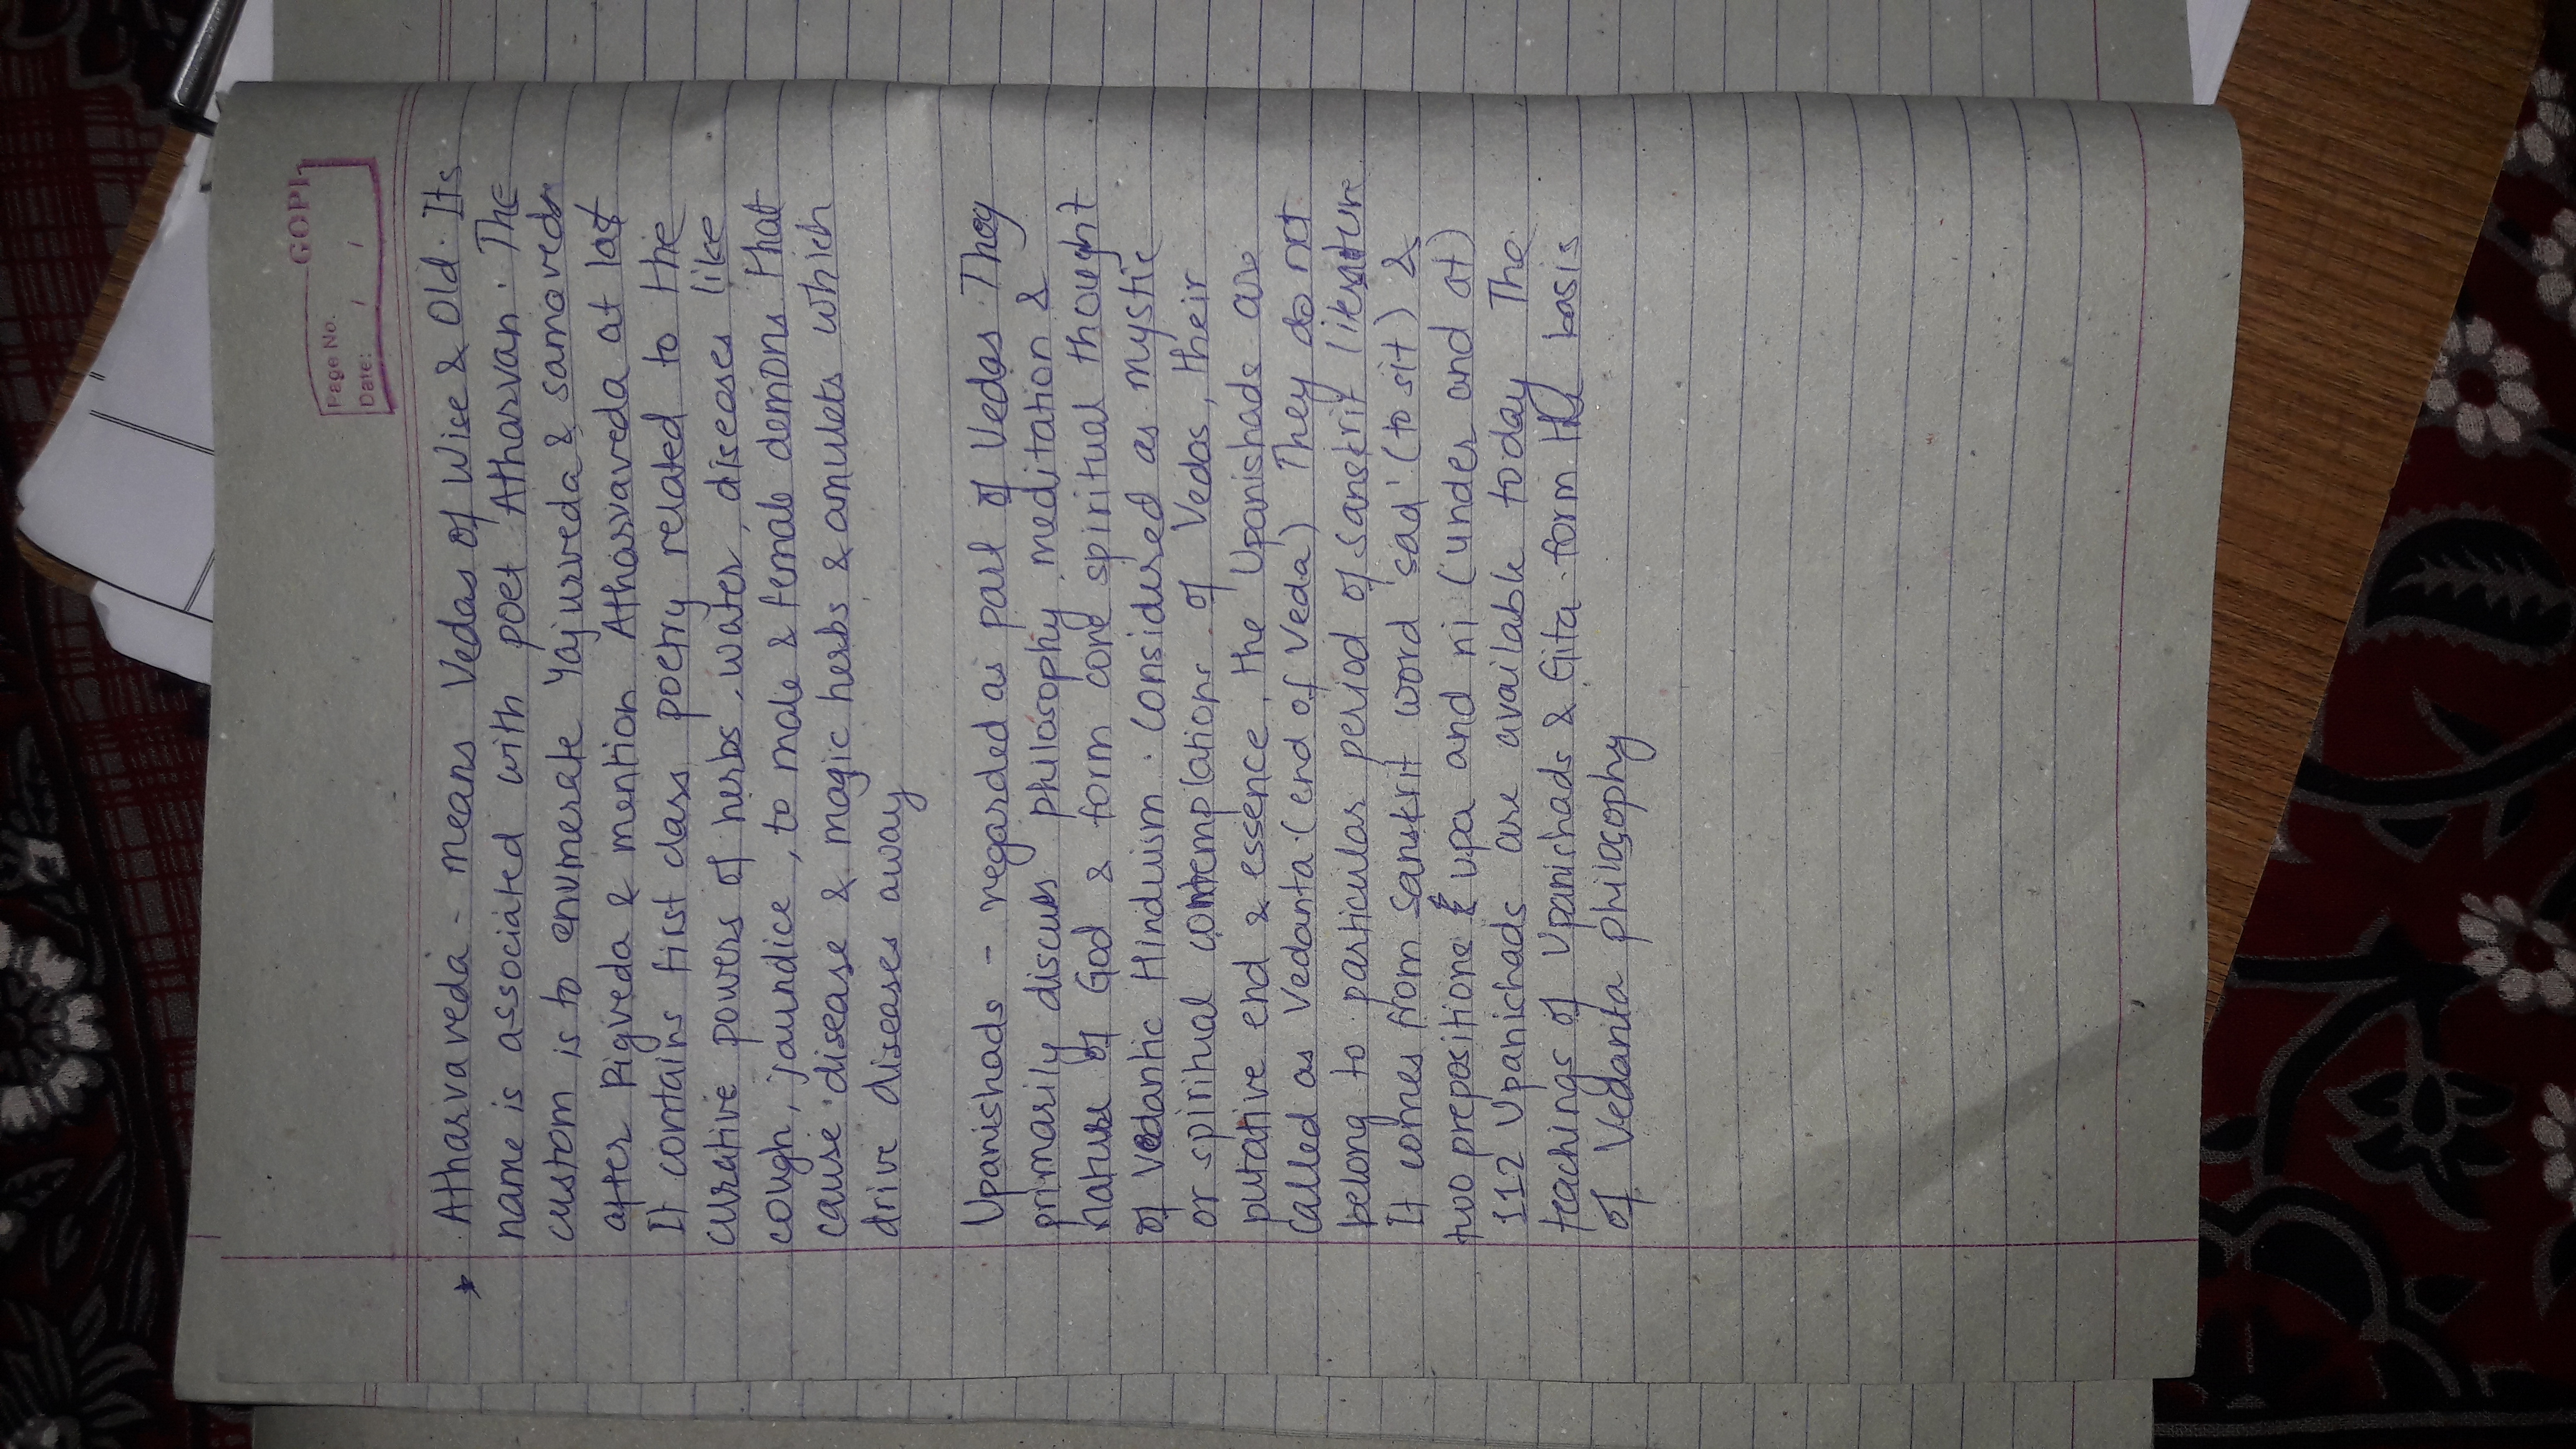 GOPI
Page No.
Date: / /
* Atharvaveda - means Vedas of Wise & Old. Its
name is associated with poet Atharvan. The
custom is to enumerate Yajurveda & samaveda
after Rigveda & mention Atharvaveda at last
It contains first class poetry related to the
curative powers of herbs, water, diseases like
cough, jaundice, to male & female demons that
cause disease & magic herbs & amulets which
drive diseases away
Upanishads - regarded as part of Vedas They
primarily discuss philosophy, meditation &
nature of God & form core spiritual thought
of Vedantic Hinduism. Considered as mystic
or spiritual contemplations of Vedas, their
putative end & essence, the Upanishads are
called as Vedanta (end of Veda) They do not
belong to particular period of Sanskrit literature
It comes from Sanskrit word 'sad' (to sit) &
two prepositions upa and ni (under and at)
112 Upanishads are available today The
teachings of Upanishads & Gita form the basis
of Vedanta philosophy